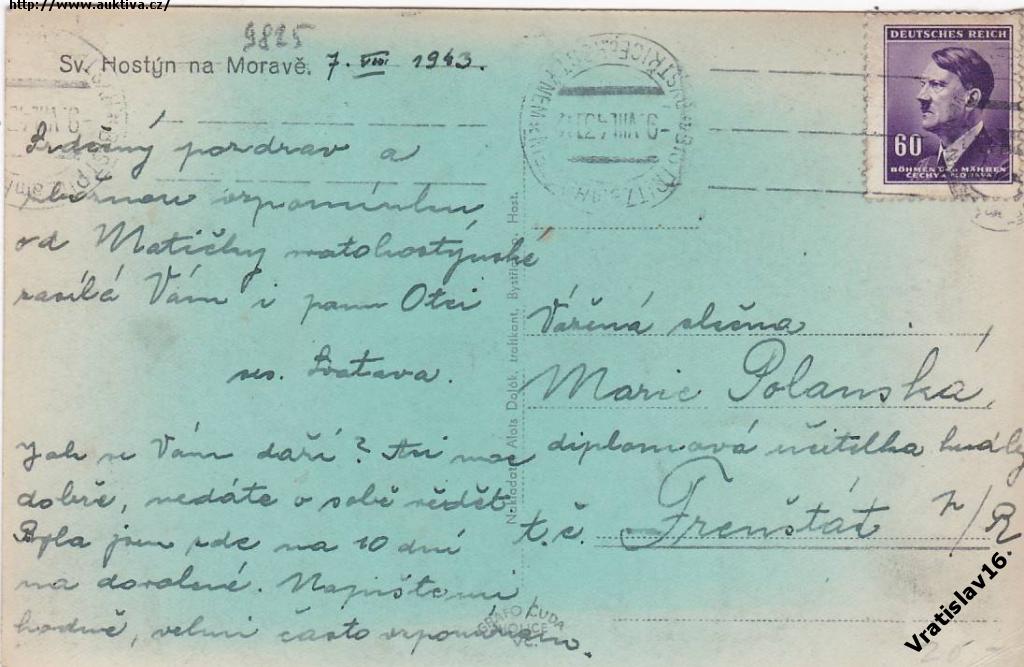 http://www.auktiva.cz/
9825
Sv. Hostýn na Moravě. 7. VIII 1943.
DEUTSCHES REICH
60
BÖHMEN UND MÄHREN
ČECHY A MORAVA
-9.VIII.43.12
Srdečný pozdrav a
zbožnou vzpomínku
od Matičky svatohostýnské
zasílá Vám i panu Otci
ses. Svatava.
Jak se Vám daří? Asi moc
dobře, nedáte o sobě vědět
Byla jsem zde na 10 dní
na dovolené. Napište mi
hodně, velmi často vzpomínám.
Nakladatel Alois Dolák, trafikant, Bystřice p. Host.
Vážená slečna
Marie Polanská,
diplomová učitelka hudby
t.č. Frenštát n/R
GRAFO ČUDA
HOLICE
Vratislav16.